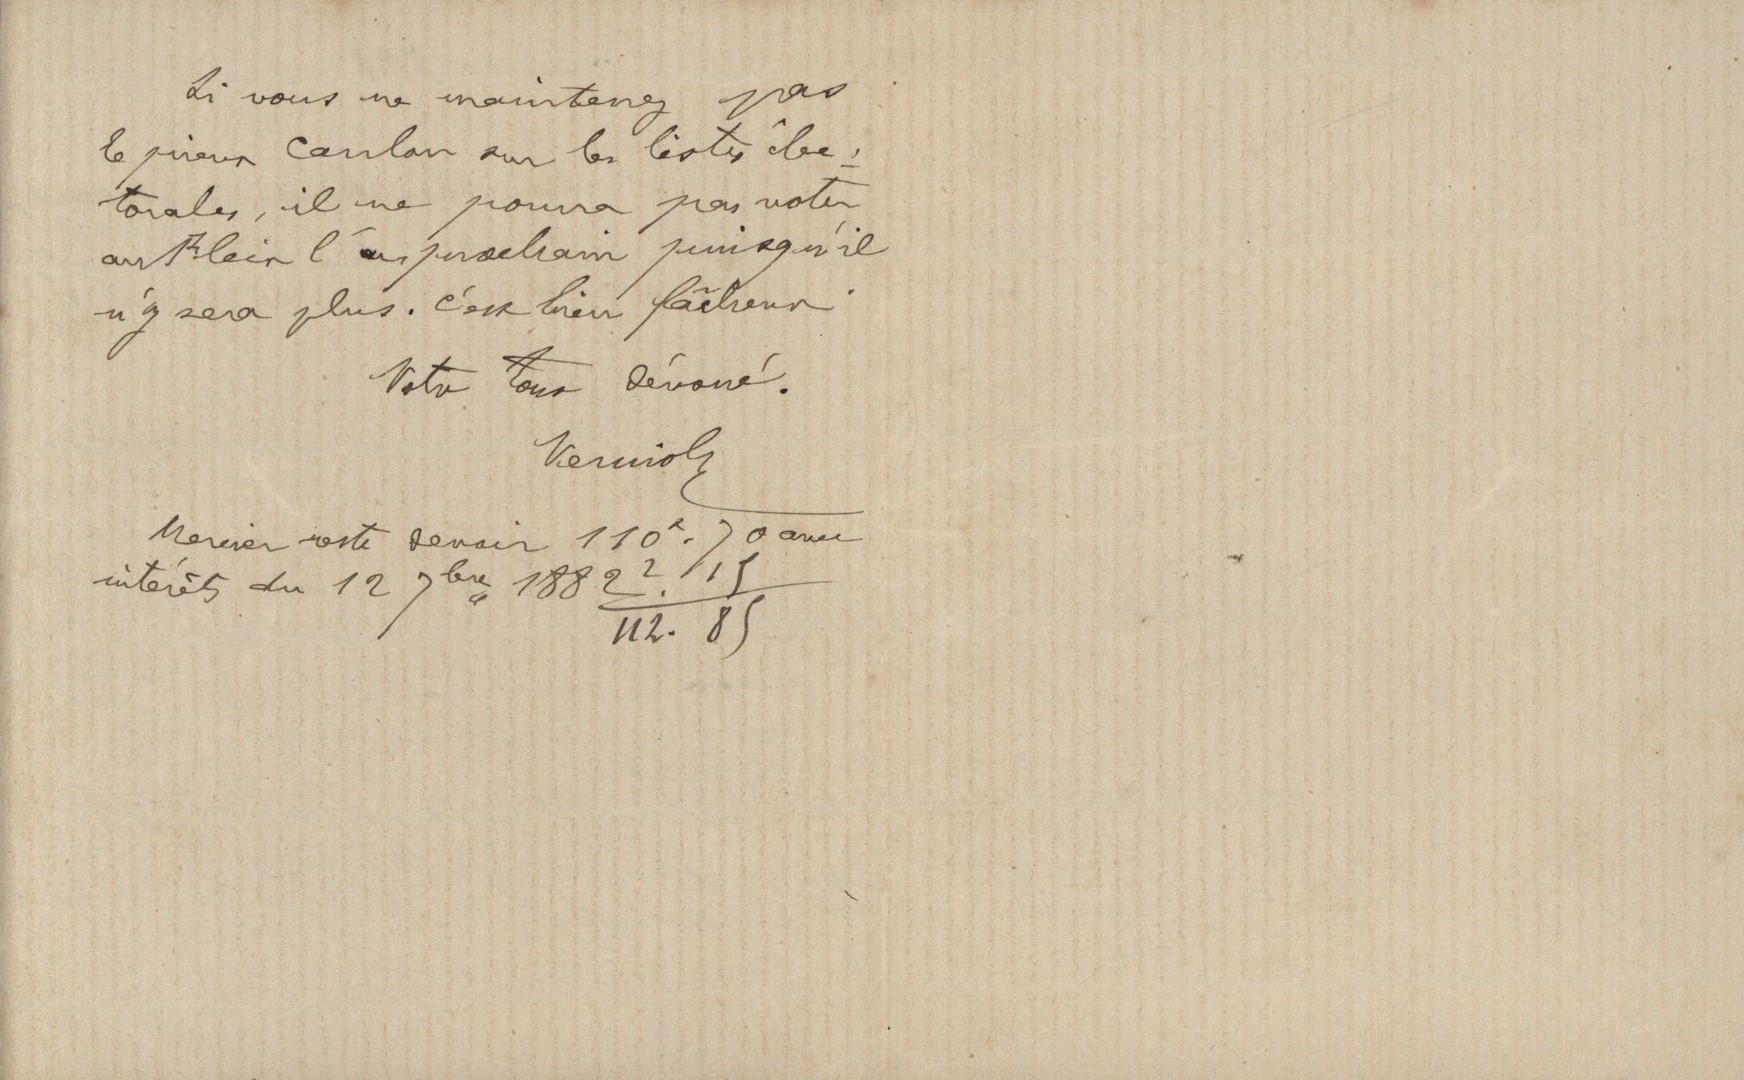 Si vous ne maintenez pas
le pieux Caulon sur les listes élec=
torales, il ne pourra pas voter
au Fleix l'an prochain puisqu'il
n'y sera plus. C'est bien fâcheux.
Votre tout dévoué.
Vermioly
Mercier reste devoir 110f.70 avec
intérêts du 12 7bre 1882 2.15
112.85